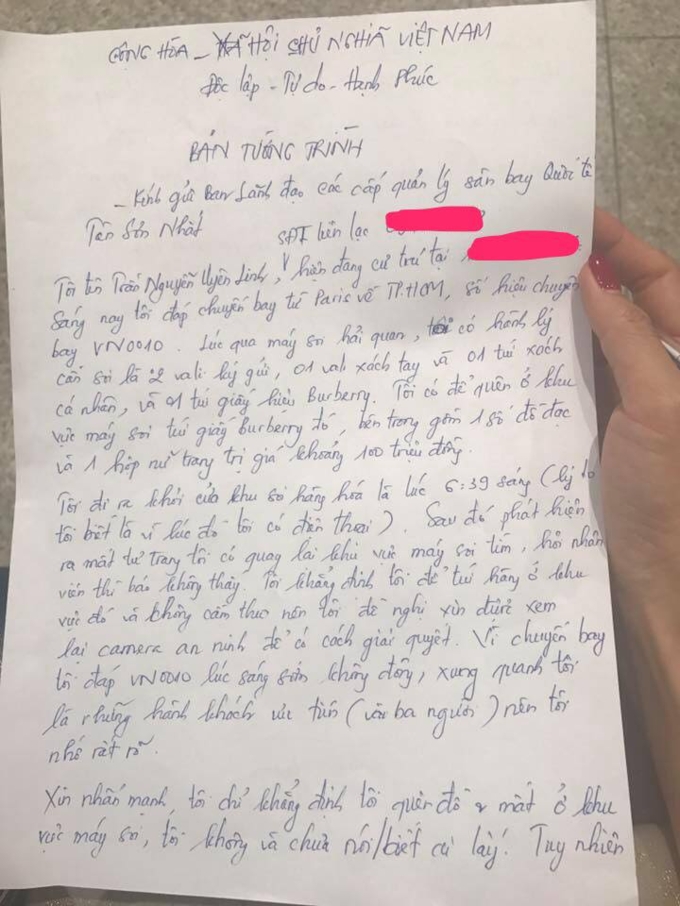 CỘNG HÒA - XÃ HỘI CHỦ NGHĨA VIỆT NAM
Độc lập - Tự do - Hạnh Phúc
BẢN TƯỜNG TRÌNH
- Kính gửi Ban Lãnh đạo các cấp quản lý sân bay Quốc tế
Tân Sơn Nhất
SĐT liên lạc
Tôi tên Trần Nguyễn Uyên Linh, V hiện đang cư trú tại
Sáng nay tôi đáp chuyến bay từ Paris về TP.HCM, số hiệu chuyến
bay VN0010. Lúc qua máy soi hải quan, tôi có hành lý
cần soi là 2 vali ký gửi, 01 vali xách tay và 01 túi xách
cá nhân, và 01 túi giấy hiệu Burberry. Tôi có để quên ở khu
vực máy soi túi giấy Burberry đó, bên trong gồm 1 số đồ đạc
và 1 hộp nữ trang trị giá khoảng 100 triệu đồng.
Tôi đi ra khỏi cửa khu soi hàng hóa là lúc 6:39 sáng (lý do
tôi biết là vì lúc đó tôi có điện thoại). Sau đó phát hiện
ra mất tư trang tôi có quay lại khu vực máy soi tìm, hỏi nhân
viên thì báo không thấy. Tôi khẳng định tôi để túi hàng ở khu
vực đó và không cầm theo nên tôi đề nghị xin được xem
lại camera an ninh để có cách giải quyết. Vì chuyến bay
tôi đáp VN0010 lúc sáng sớm không đông, xung quanh tôi
là những hành khách (vài ba người) nên tôi
nhớ rất rõ.
Xin nhấn mạnh, tôi chỉ khẳng định tôi quên đồ & mất ở khu
vực máy soi, tôi không và chưa nói/biết ai lấy! Tuy nhiên